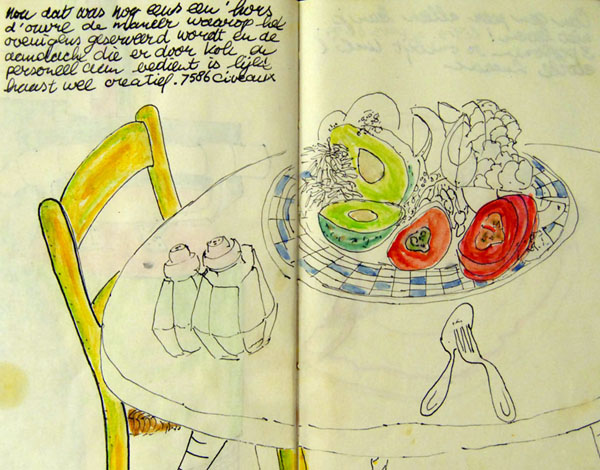 nou dat was nog eens een 'hors
d'ouvre de manier waarop het
overigens geserveerd wordt en de
aandacht die er door kok en
personeel aan bedient is lijkt
haast wel creatief. 7586 Civeaux